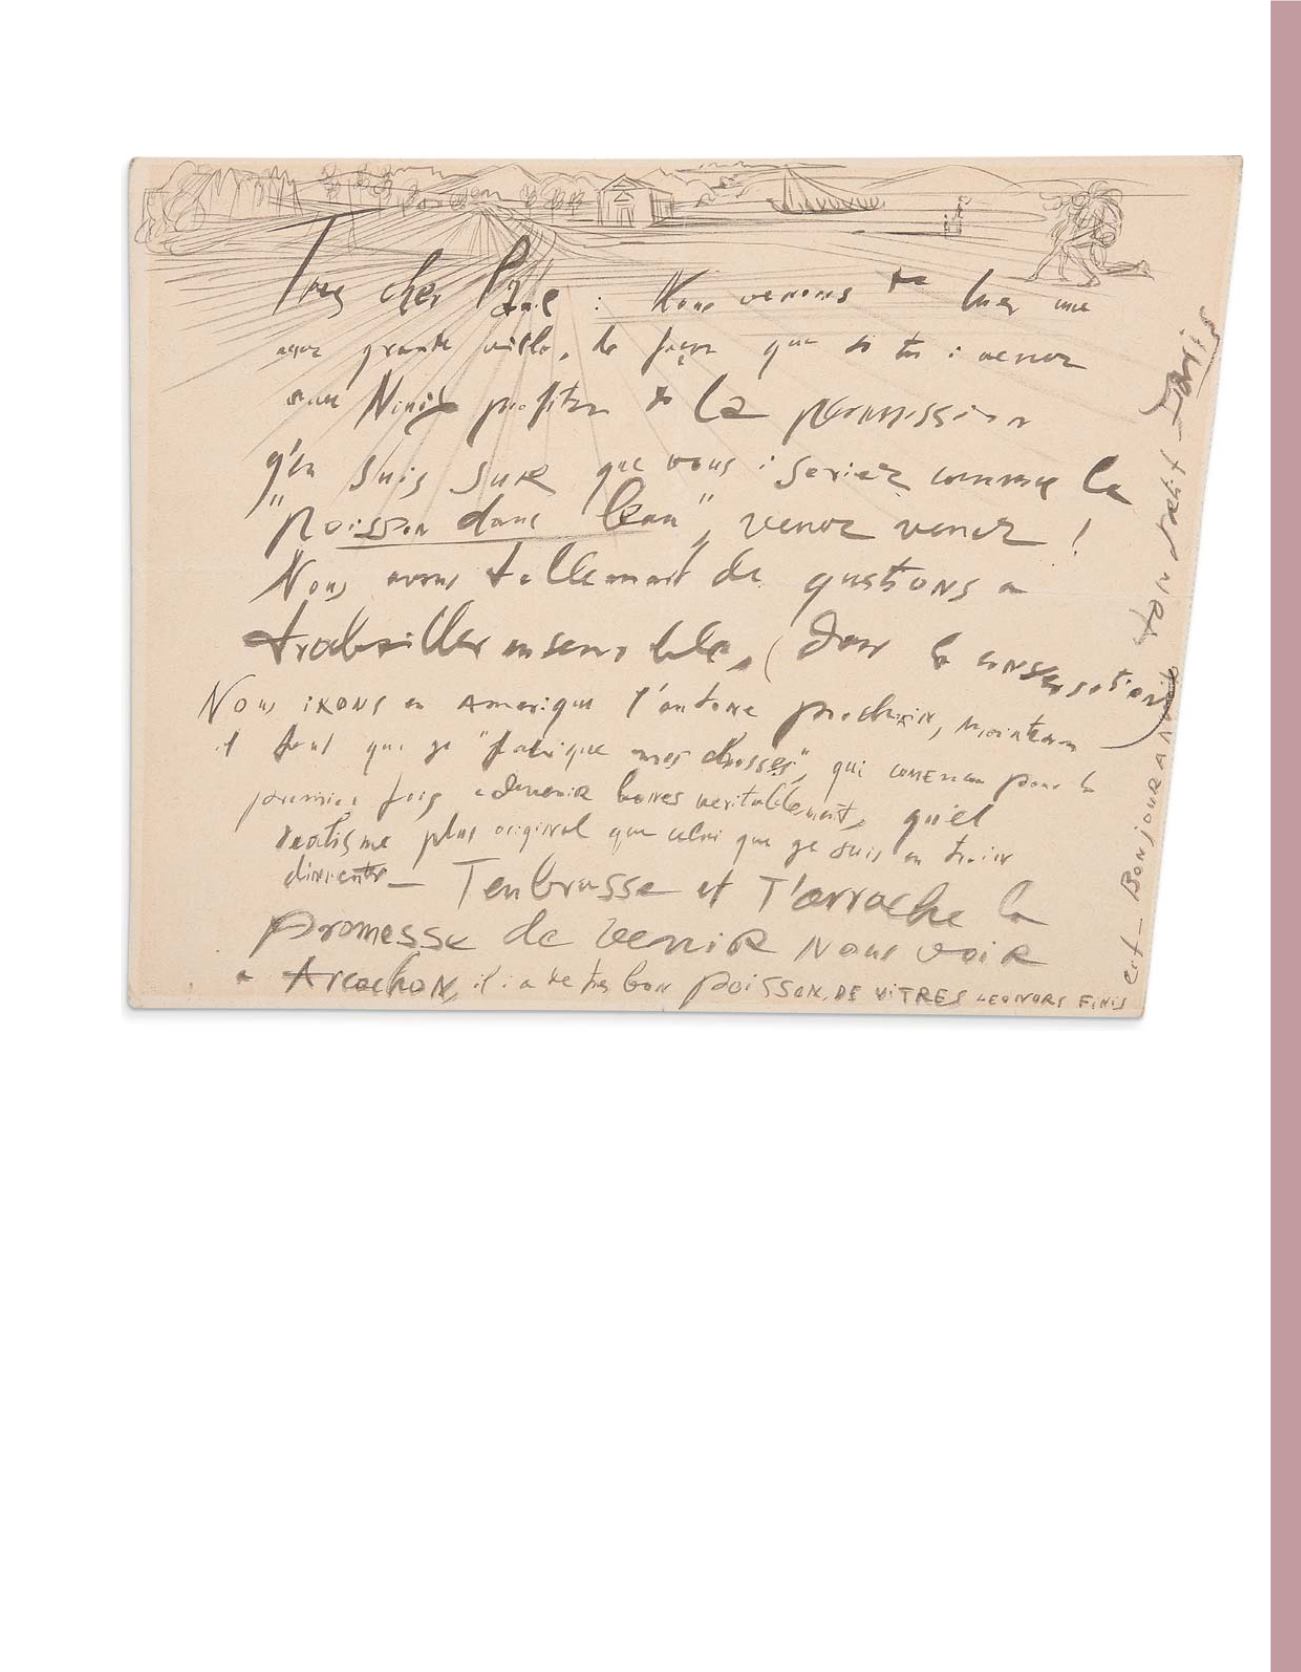 Tres cher Paul : Nous venons de luer une
asez grande villa, de façon que si tu i venez
avec Ninich profiter de la permission
g'en suis sure que vous i seriez comme le
"poisson dans leau", venez venez !
Nous avons tellemant de qustions a
trabailler ensemble, (dans la conversation)
Nous irons en Amerique l'autone prochain, maintenan
il faut que ge "fabrique mes chosses", qui comencan pour la
premiere fois a devenir bones veritablemant, quel
realisme plus original que celui que ge suis en train
dinventer — Tenbrasse et t'arrache la
promesse de venir nous voir
a Arcachon, il i a de tres bon poisson, DE VITRES LEONORS FINIS
ect — Bonjour a ton petit Paris